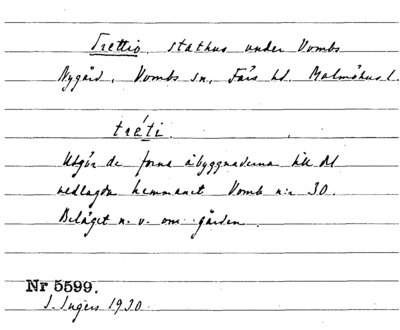 Trettio, stathus under Vombs
Nygård, Vombs sn, Färs hd. Malmöhus l.
tréti.
Utgör de forna åbyggnaderna till det
nedlagda hemmanet Vomb n:r 30.
Beläget n. v. om gården.
Nr 5599.
I. Ingers 1930